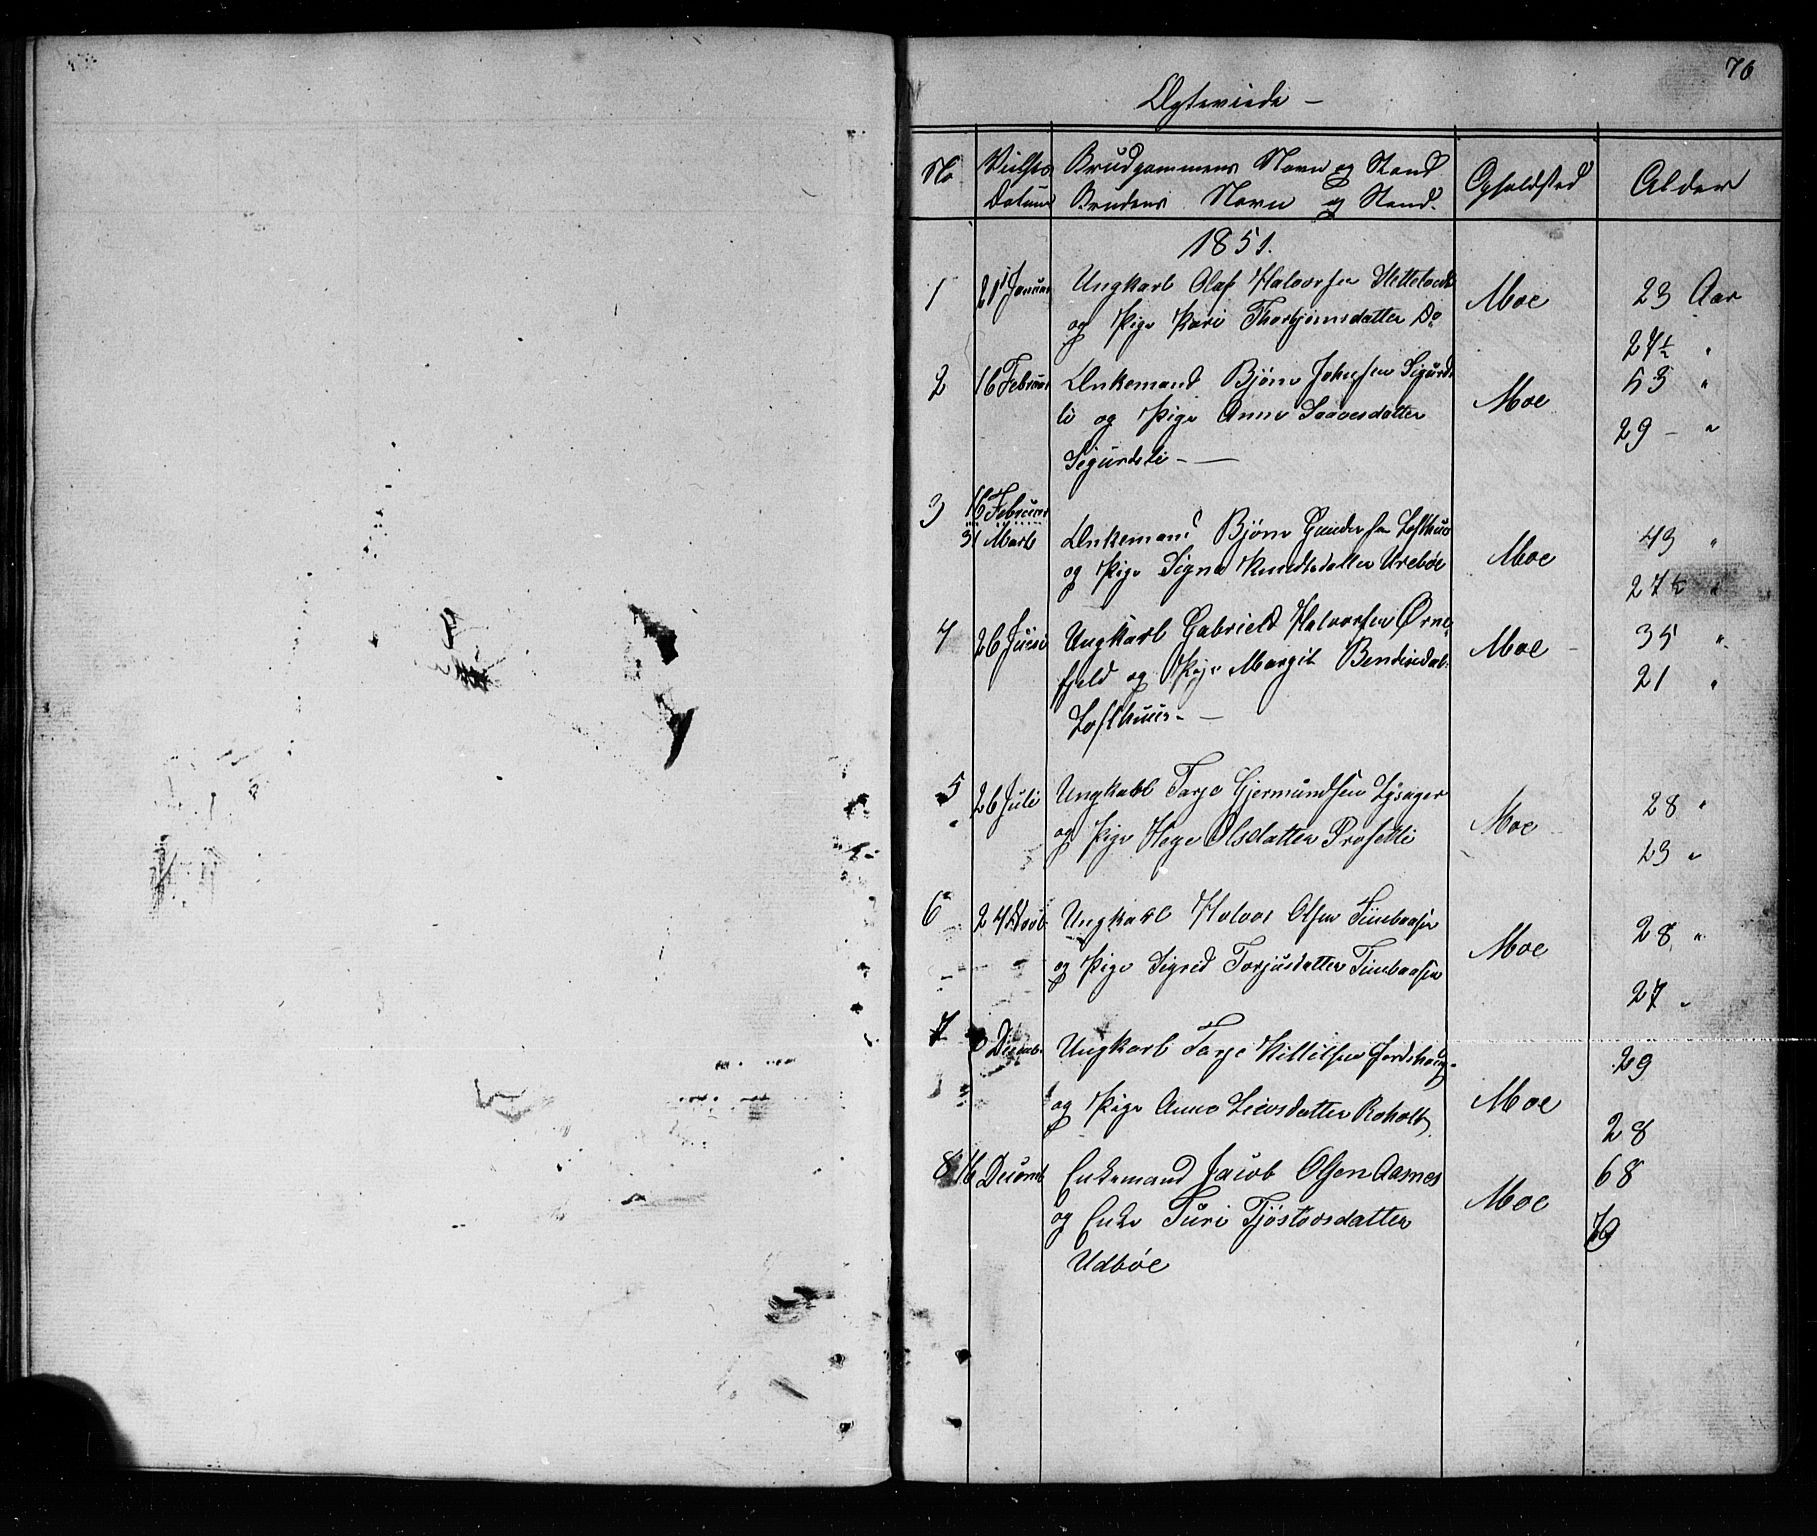 76
Ægteviede –
No Vielses Brudgommens Navn og Stand Opholdsted Alder
Datum Brudens Navn og Stand.
1851.
1 21 Januar Ungkarl Olaf Halvorsen Moe 23 Aar
og Pige Kari Thorbjørnsdatter Do 27½ "
2 16 Februar Enkemand Bjørn Johnsen Sigurds Moe 53 "
li og Pige Anne Saavesdatter 29 – "
Sigurdsli –
3 16 Februar
31 Marts Enkemand Bjørn Gundersen Lofthuus Moe 43 "
og Pige Signe Knudsdatter Urebøe 27½ "
4 26 Juni Ungkarl Gabriel Halvorsen Ørne- Moe – 35 "
fjeld og Pige Margit Bendixdat. 21 "
Lofthuus –
5 26 Juli Ungkarl Tarje Gjermundsen Lysager Moe 28 "
og Pige Hæge Olsdatter 23 "
6 Novb Ungkarl Halvor Olsen Timbaasen Moe 28 "
og Pige Sigrid Torjusdatter Timbaasen 27 "
7 Decemb. Ungkarl Tarje Kittilsen 29
og Pige Anne Leivsdatter Roholt Moe 28
8 16 Decemb Enkemand Jacob Olsen Aasnes Moe 68
og Enke Turi Tjøstovsdatter 79
Udbøe